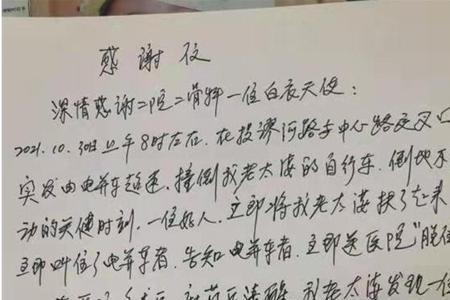 感谢信
深情感谢二院二骨科一位白衣天使：
2021.10.30日上午8时左右.在投谬河路与中心路交叉口
突发由电并车超速.撞倒我老太婆的自行车.倒地不
动的关健时刻.一位好人.立即将我老太婆扶了起来
立即叫住了电并车者.告知电并车者.立即送医院"脱位
我老太婆发现一位